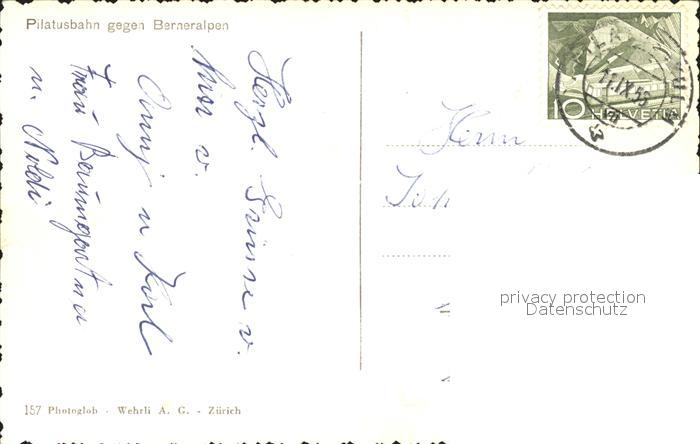 Pilatusbahn gegen Berneralpen
Herzl. Grüsse v.
hier v.
Anny u Karl
Frau Baumgartner
u. Noldi
10 HELVETIA
11.IX.56
Herrn
privacy protection
Datenschutz
157 Photoglob - Wehrli A. G. - Zürich